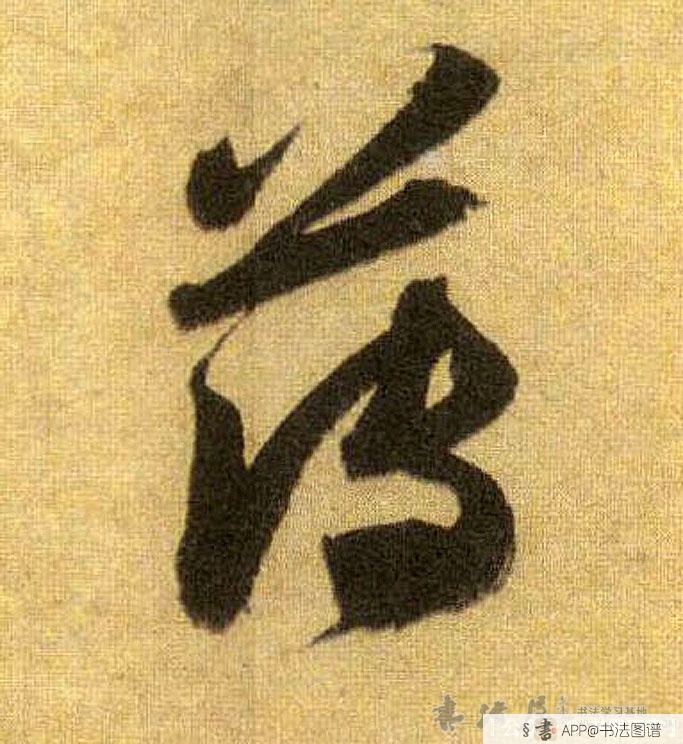 薄
书法学习基地
§書 APP@书法图谱